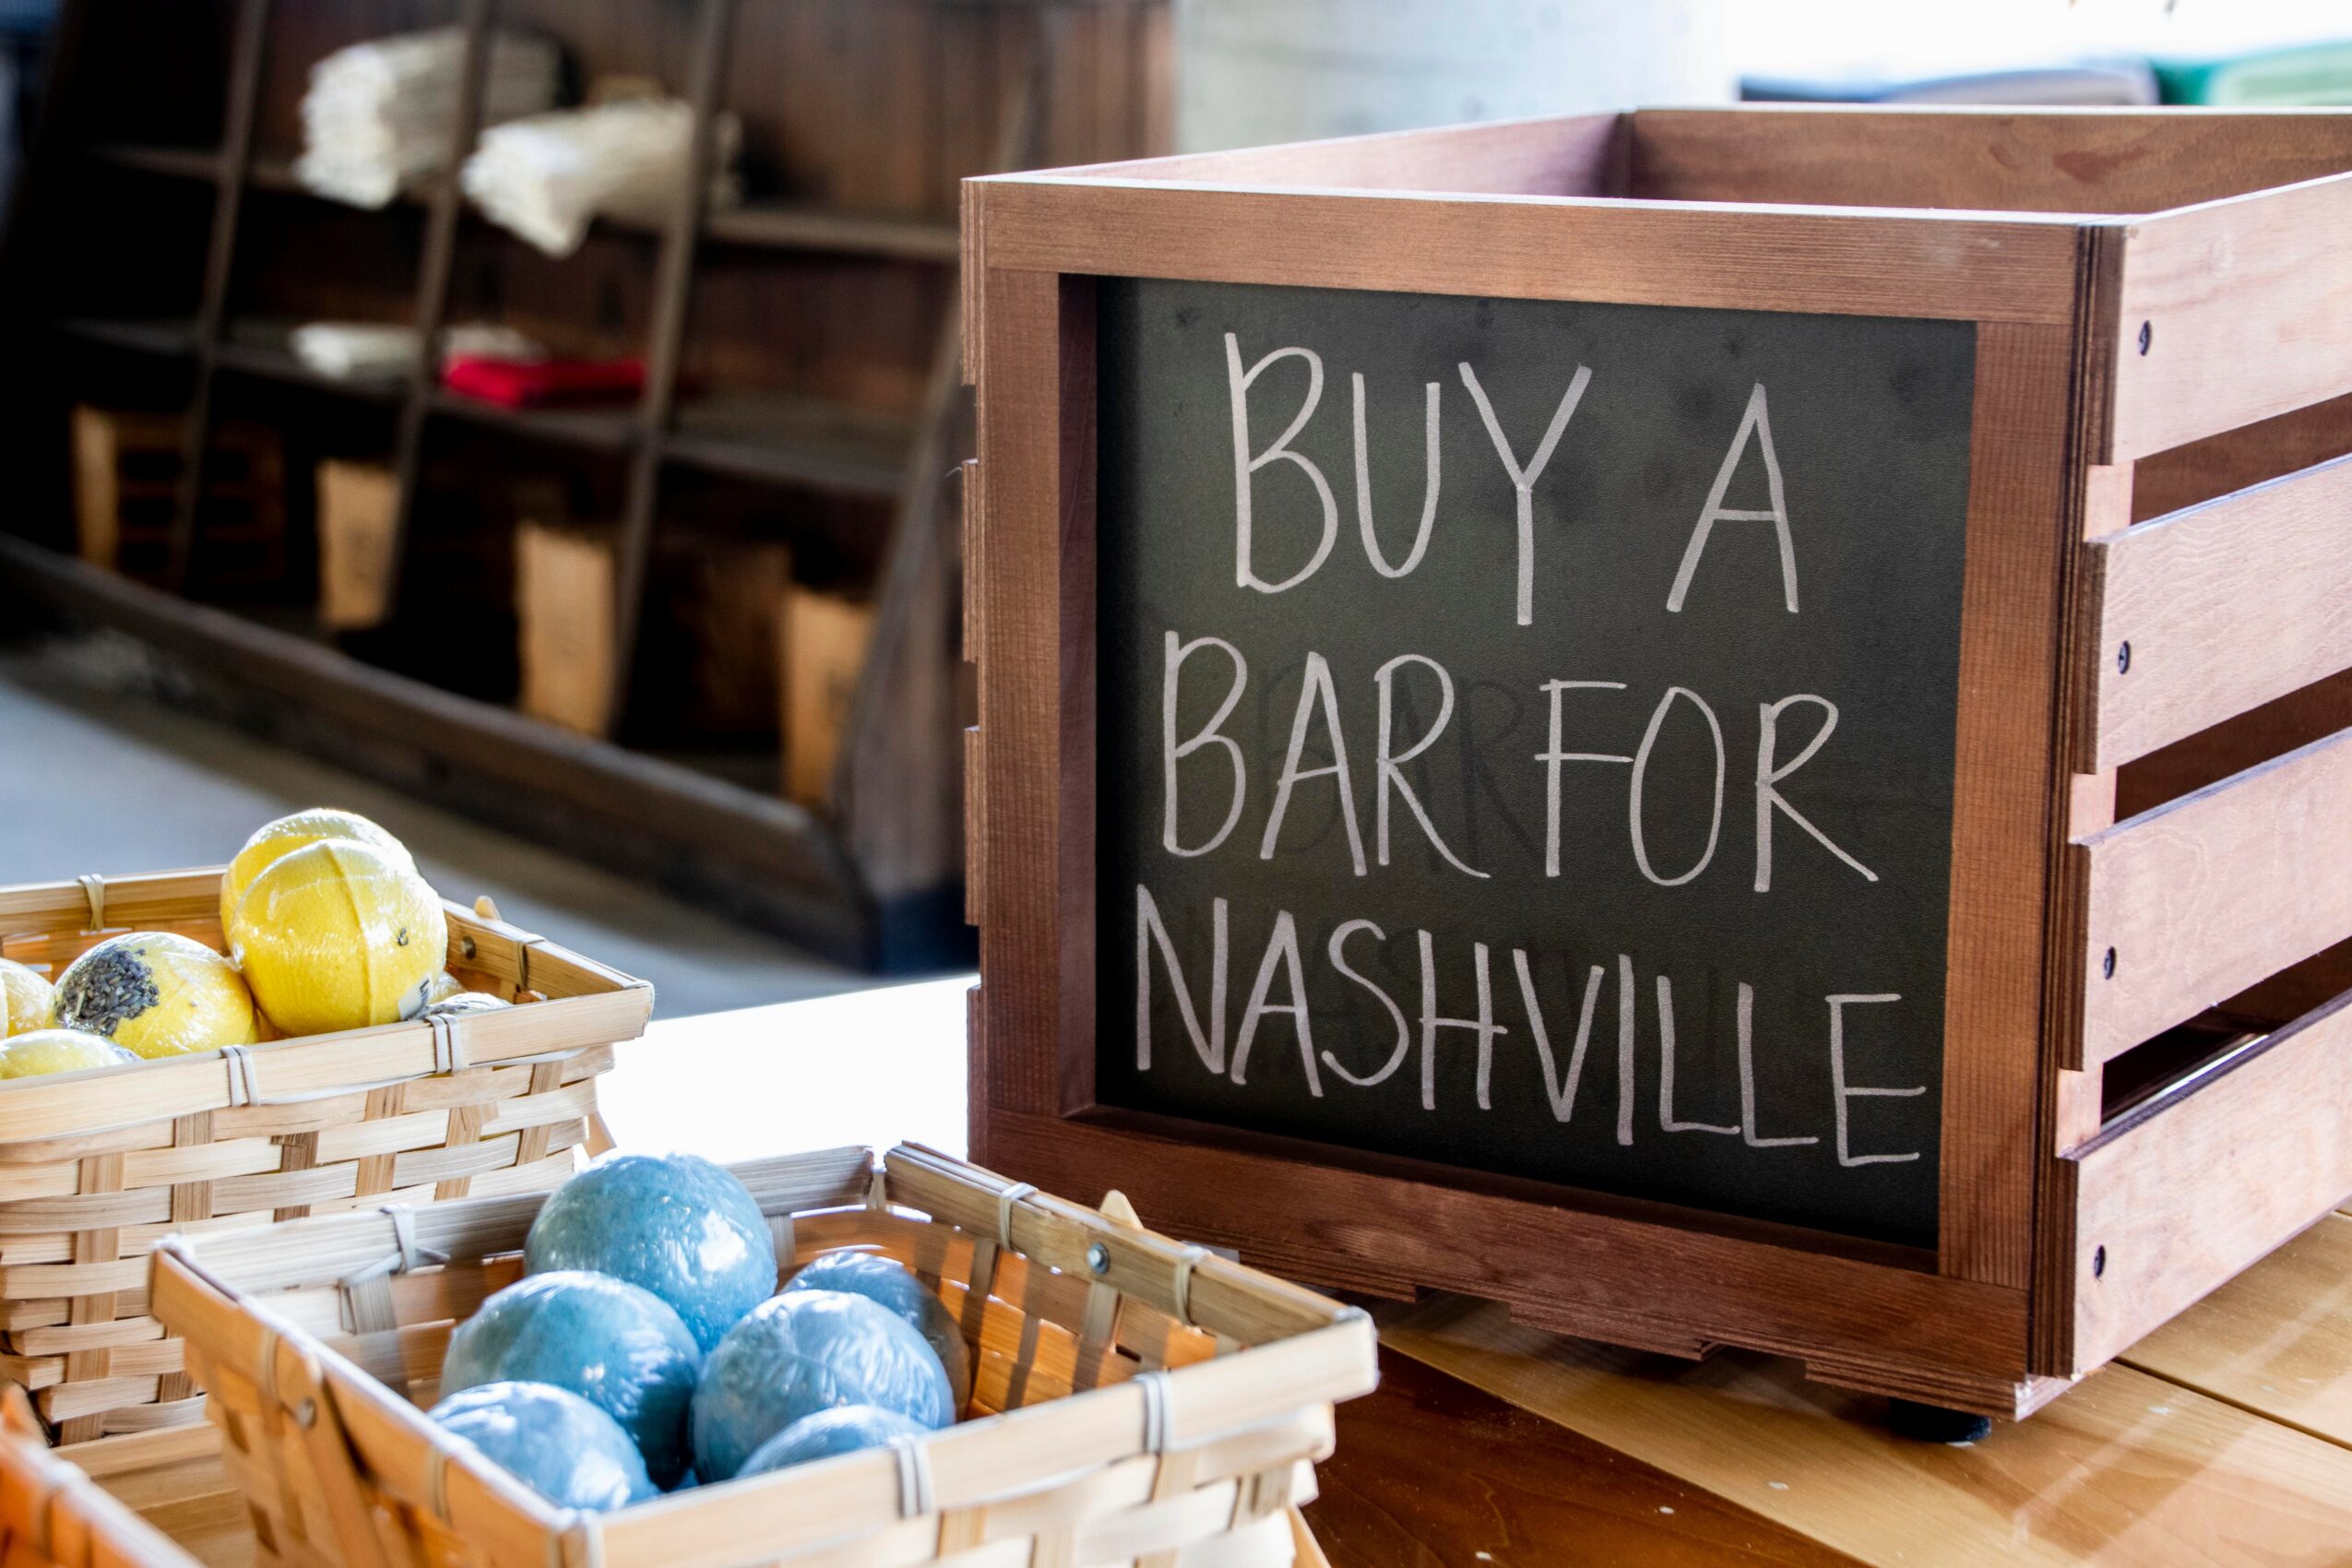 BUY A
BAR FOR
NASHVILLE